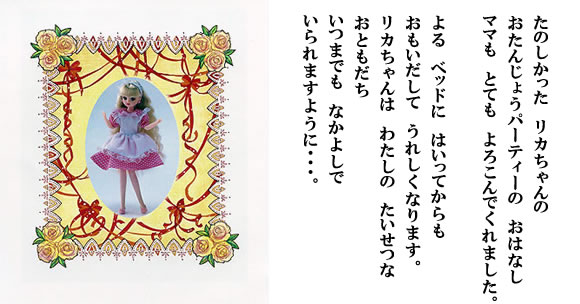 たのしかった　リカちゃんの
おたんじょうパーティーの　おはなし
ママも　とても　よろこんでくれました。
よる　ベッドに　はいってからも
おもいだして　うれしくなります。
リカちゃんは　わたしの　たいせつな
おともだち
いつまでも　なかよしで
いられますように・・・。